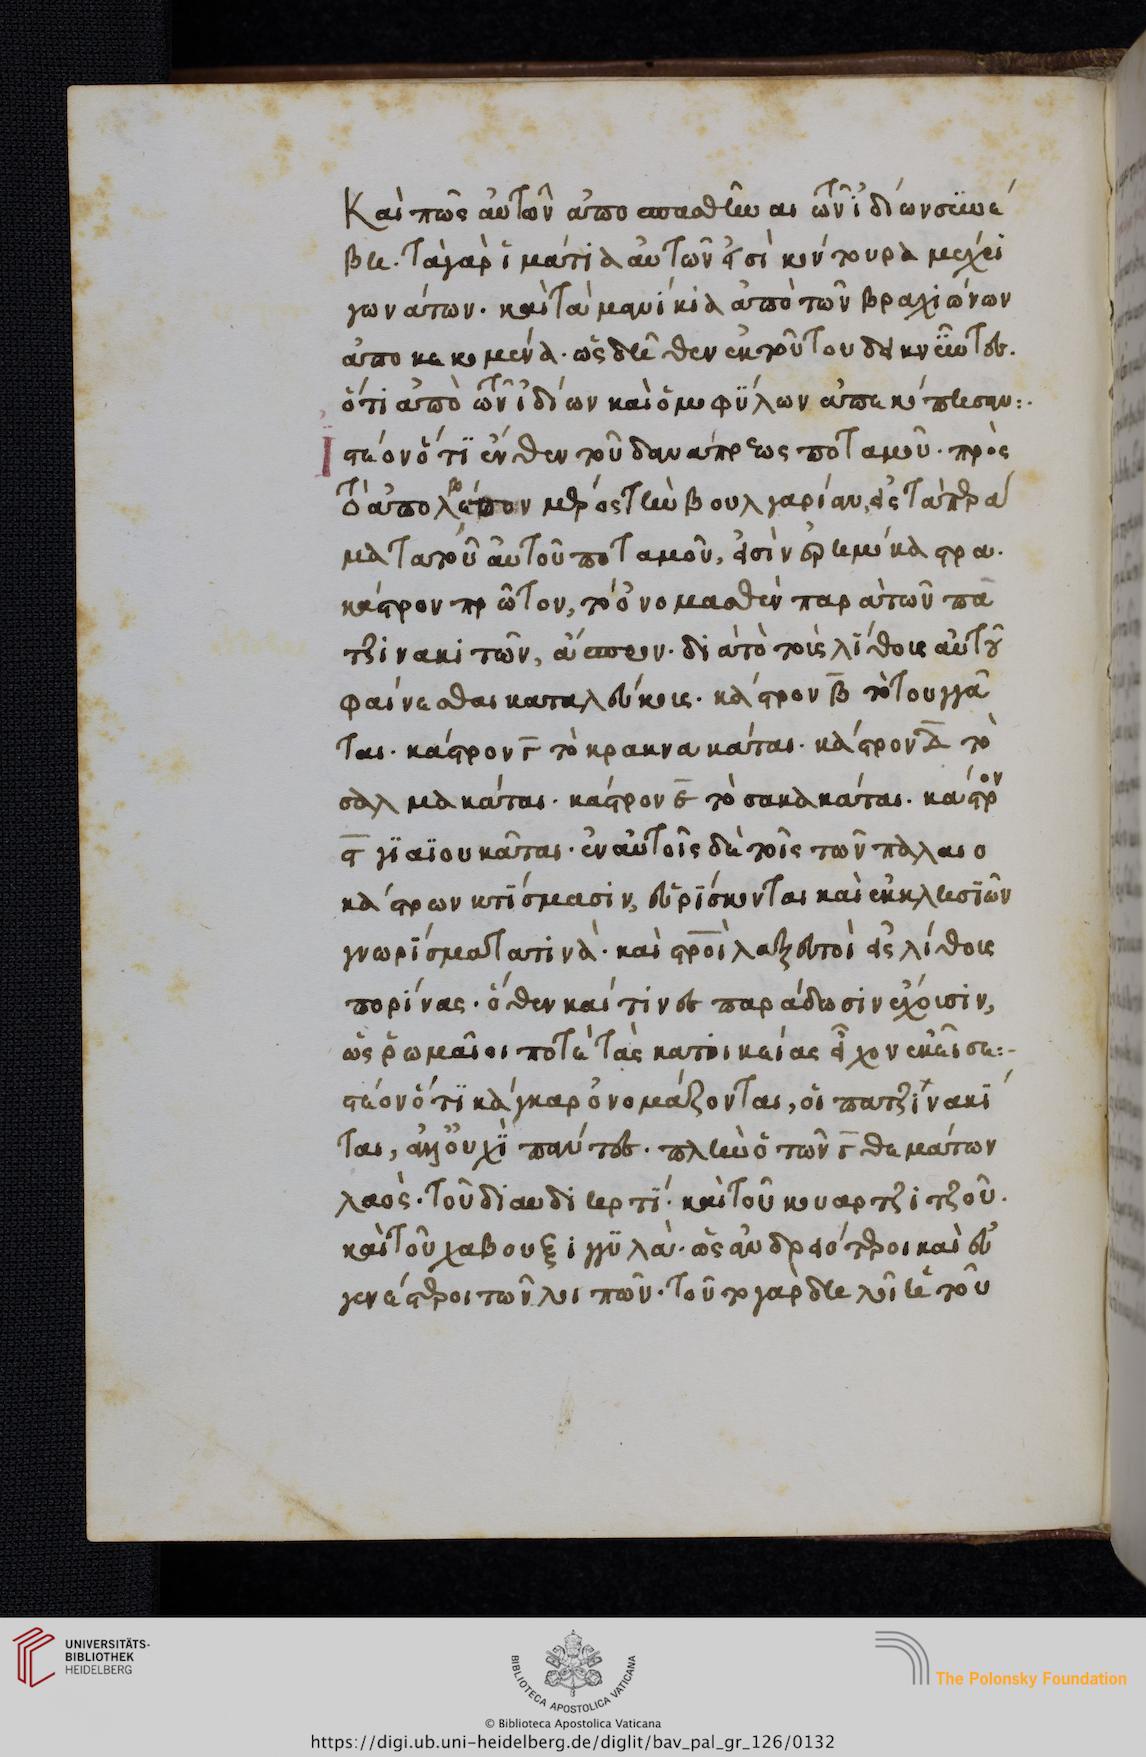 Καὶ πῶς αὐτῶν ἀποσπασθῆναι τῶν ἰδίων συνέ
βη. τὰ γὰρ ἱμάτια αὐτῶν εἰσὶ κόντουρα μέχρι
γονάτων. καὶ τὰ μανίκια ἀπὸ τῶν βραχιόνων
ἀποκεκομένα. ὡς δῆθεν ἐκ τούτου δεικνύοντες.
ὅτι ἀπὸ τῶν ἰδίων καὶ ὁμοφύλων ἀπεκόπησαν:.
Ἰστέον ὅτι ἔνθεν τοῦ δαναπρεως ποταμοῦ. πρὸς
τὸ ἀποβλέπον μέρος τὴν βουλγαρίαν, εἰς τὰ περά
ματα τοῦ αὐτοῦ ποταμοῦ, εἰσὶν ἐρημόκαστρα.
κάστρον πρῶτον, τὸ ὀνομασθὲν παρὰ τῶν πα
τζινακιτῶν, ἄσπρον. διὰ τὸ τοὺς λίθους αὐτοῦ
φαίνεσθαι καταλεύκους. κάστρον β̅ τὸ τουγγά
ται. κάστρον γ̅ τὸ κρακνακάται. κάστρον δ̅ τὸ
σαλμακάται. κάστρον ε̅ τὸ σακακάται. κάστρον
ϛ̅ γιαϊουκάται. ἐν αὐτοῖς δὲ τοῖς τῶν παλαιο
κάστρων κτίσμασιν, εὑρίσκονται καὶ ἐκκλησιῶν
γνωρίσματα τινὰ. καὶ σταυροὶ λαξευτοὶ εἰς λίθους
πορίνας. ὅθεν καί τινες παράδωσιν ἔχουσιν,
ὡς ῥωμαῖοι ποτὲ τὰς κατοικείας εἶχον ἐκεῖσε:-
στέον ὅτι κάγκαρ ὀνομάζονται, οἱ πατζινακί
ται, ἀλλ' οὐχὶ πάντες. πλὴν ὁ τῶν γ̅ θεμάτων
λαὸς. τοῦ διαυδιερτί. καὶ τοῦ κουαρτζιτζοῦρ.
καὶ τοῦ χαβουξιγγυλά. ὡς ἀνδρειότεροι καὶ εὐ
γενέστεροι τῶν λοιπῶν. τοῦτο γὰρ δηλοῖ ἡ τοῦ
UNIVERSITÄTS-
BIBLIOTHEK
HEIDELBERG
BIBLIOTECA APOSTOLICA VATICANA
The Polonsky Foundation
© Biblioteca Apostolica Vaticana
https://digi.ub.uni-heidelberg.de/diglit/bav_pal_gr_126/0132